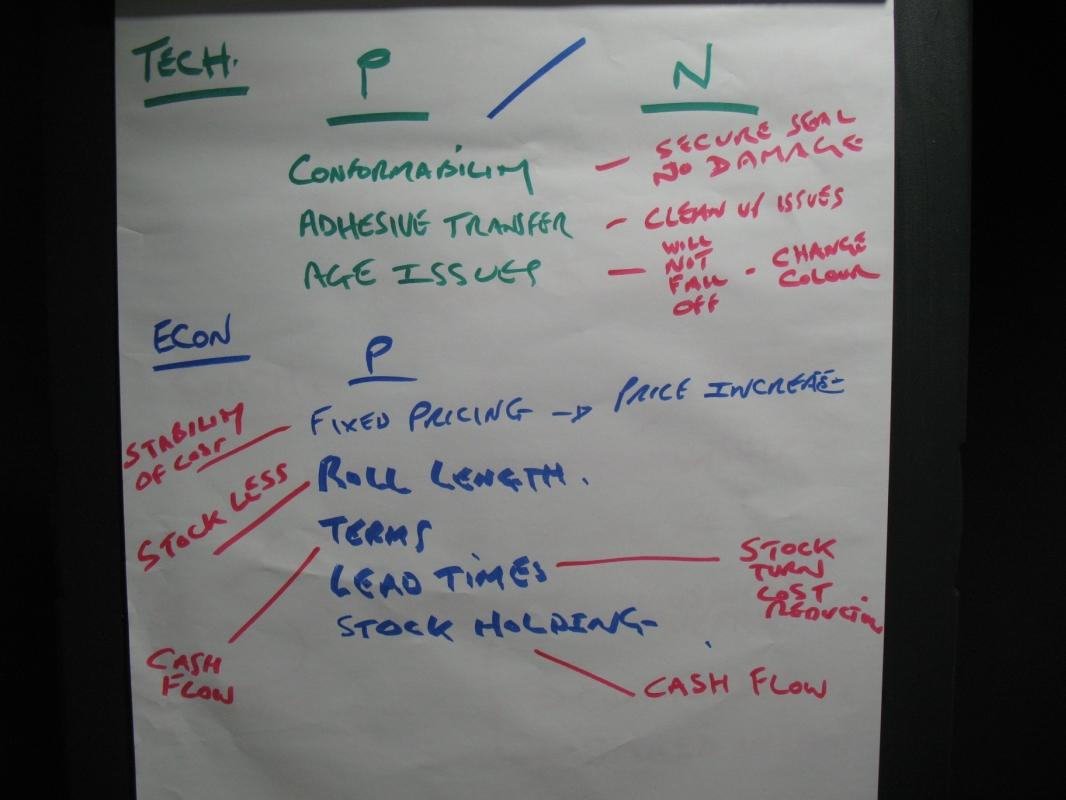 TECH. P / N
CONFORMABILITY — SECURE SEAL
NO DAMAGE
ADHESIVE TRANSFER – CLEAN UP ISSUES
AGE ISSUES — WILL
NOT
FALL
OFF
- CHANGE
COLOUR
ECON P
STABILITY
OF COST
FIXED PRICING → PRICE INCREASE
STOCK LESS
ROLL LENGTH.
TERMS
LEAD TIMES
STOCK
TURN
COST.
REDUCTION
STOCK HOLDING
CASH
FLOW
CASH FLOW